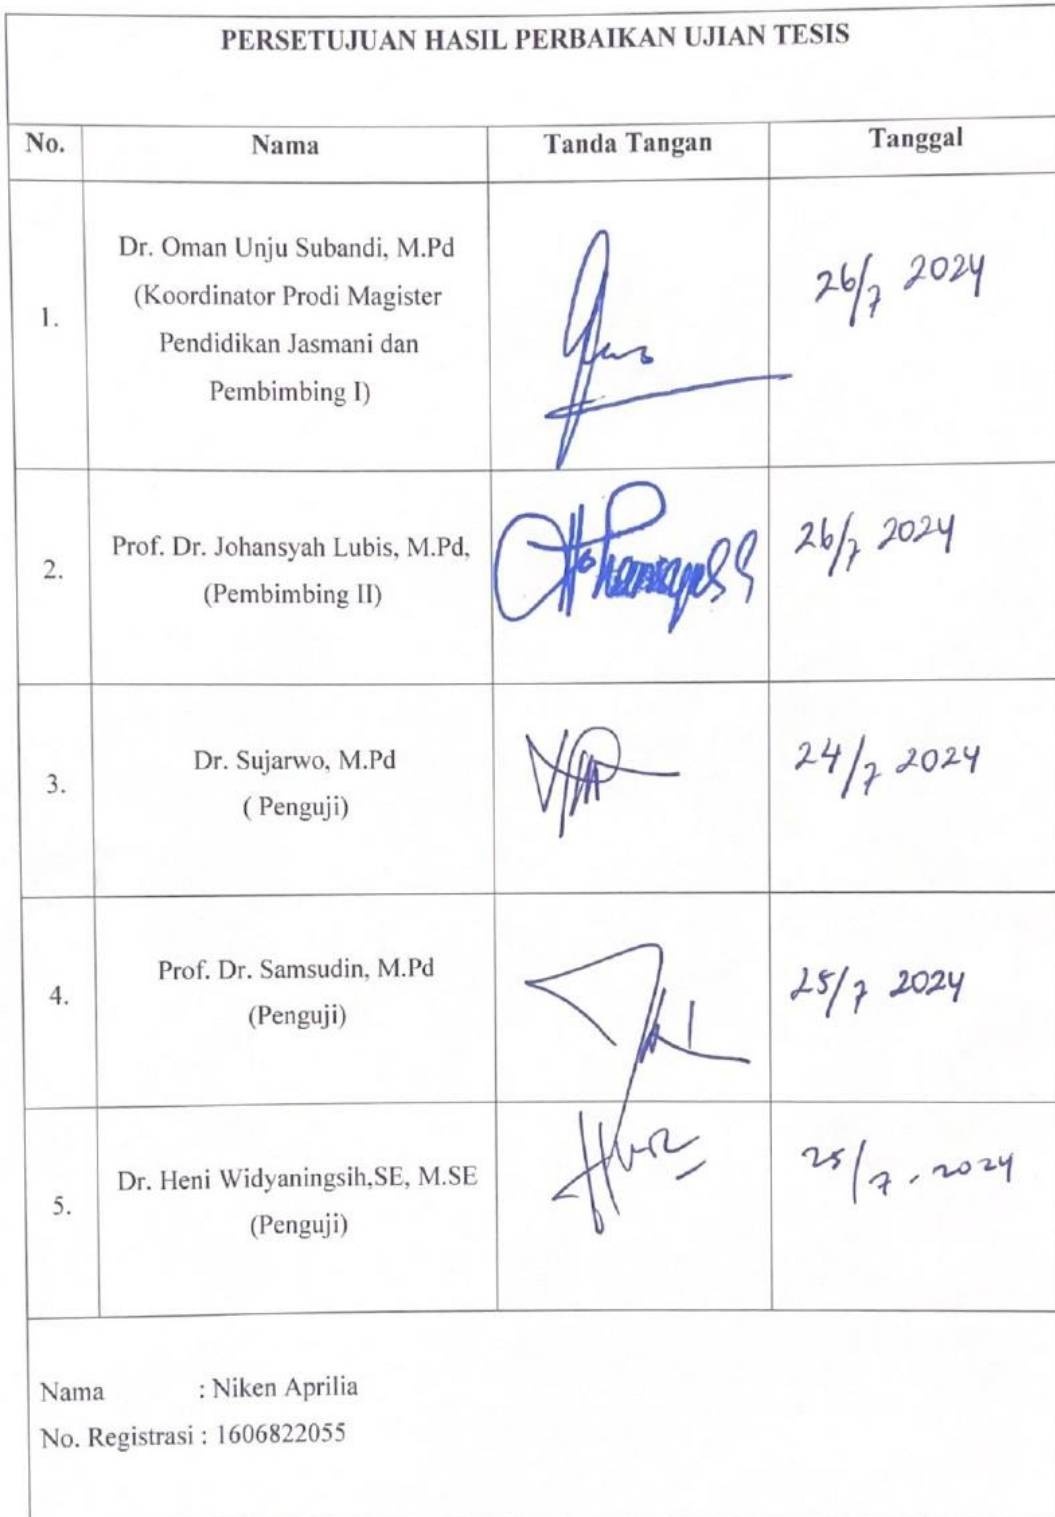 PERSETUJUAN HASIL PERBAIKAN UJIAN TESIS
No. Nama Tanda Tangan Tanggal
1.
Dr. Oman Unju Subandi, M.Pd
(Koordinator Prodi Magister
Pendidikan Jasmani dan
Pembimbing I)
26/7 2024
2.
Prof. Dr. Johansyah Lubis, M.Pd,
(Pembimbing II)
26/7 2024
3.
Dr. Sujarwo, M.Pd
( Penguji)
24/7 2024
4.
Prof. Dr. Samsudin, M.Pd
(Penguji)
25/7 2024
5.
Dr. Heni Widyaningsih,SE, M.SE
(Penguji)
25/7 . 2024
Nama : Niken Aprilia
No. Registrasi : 1606822055